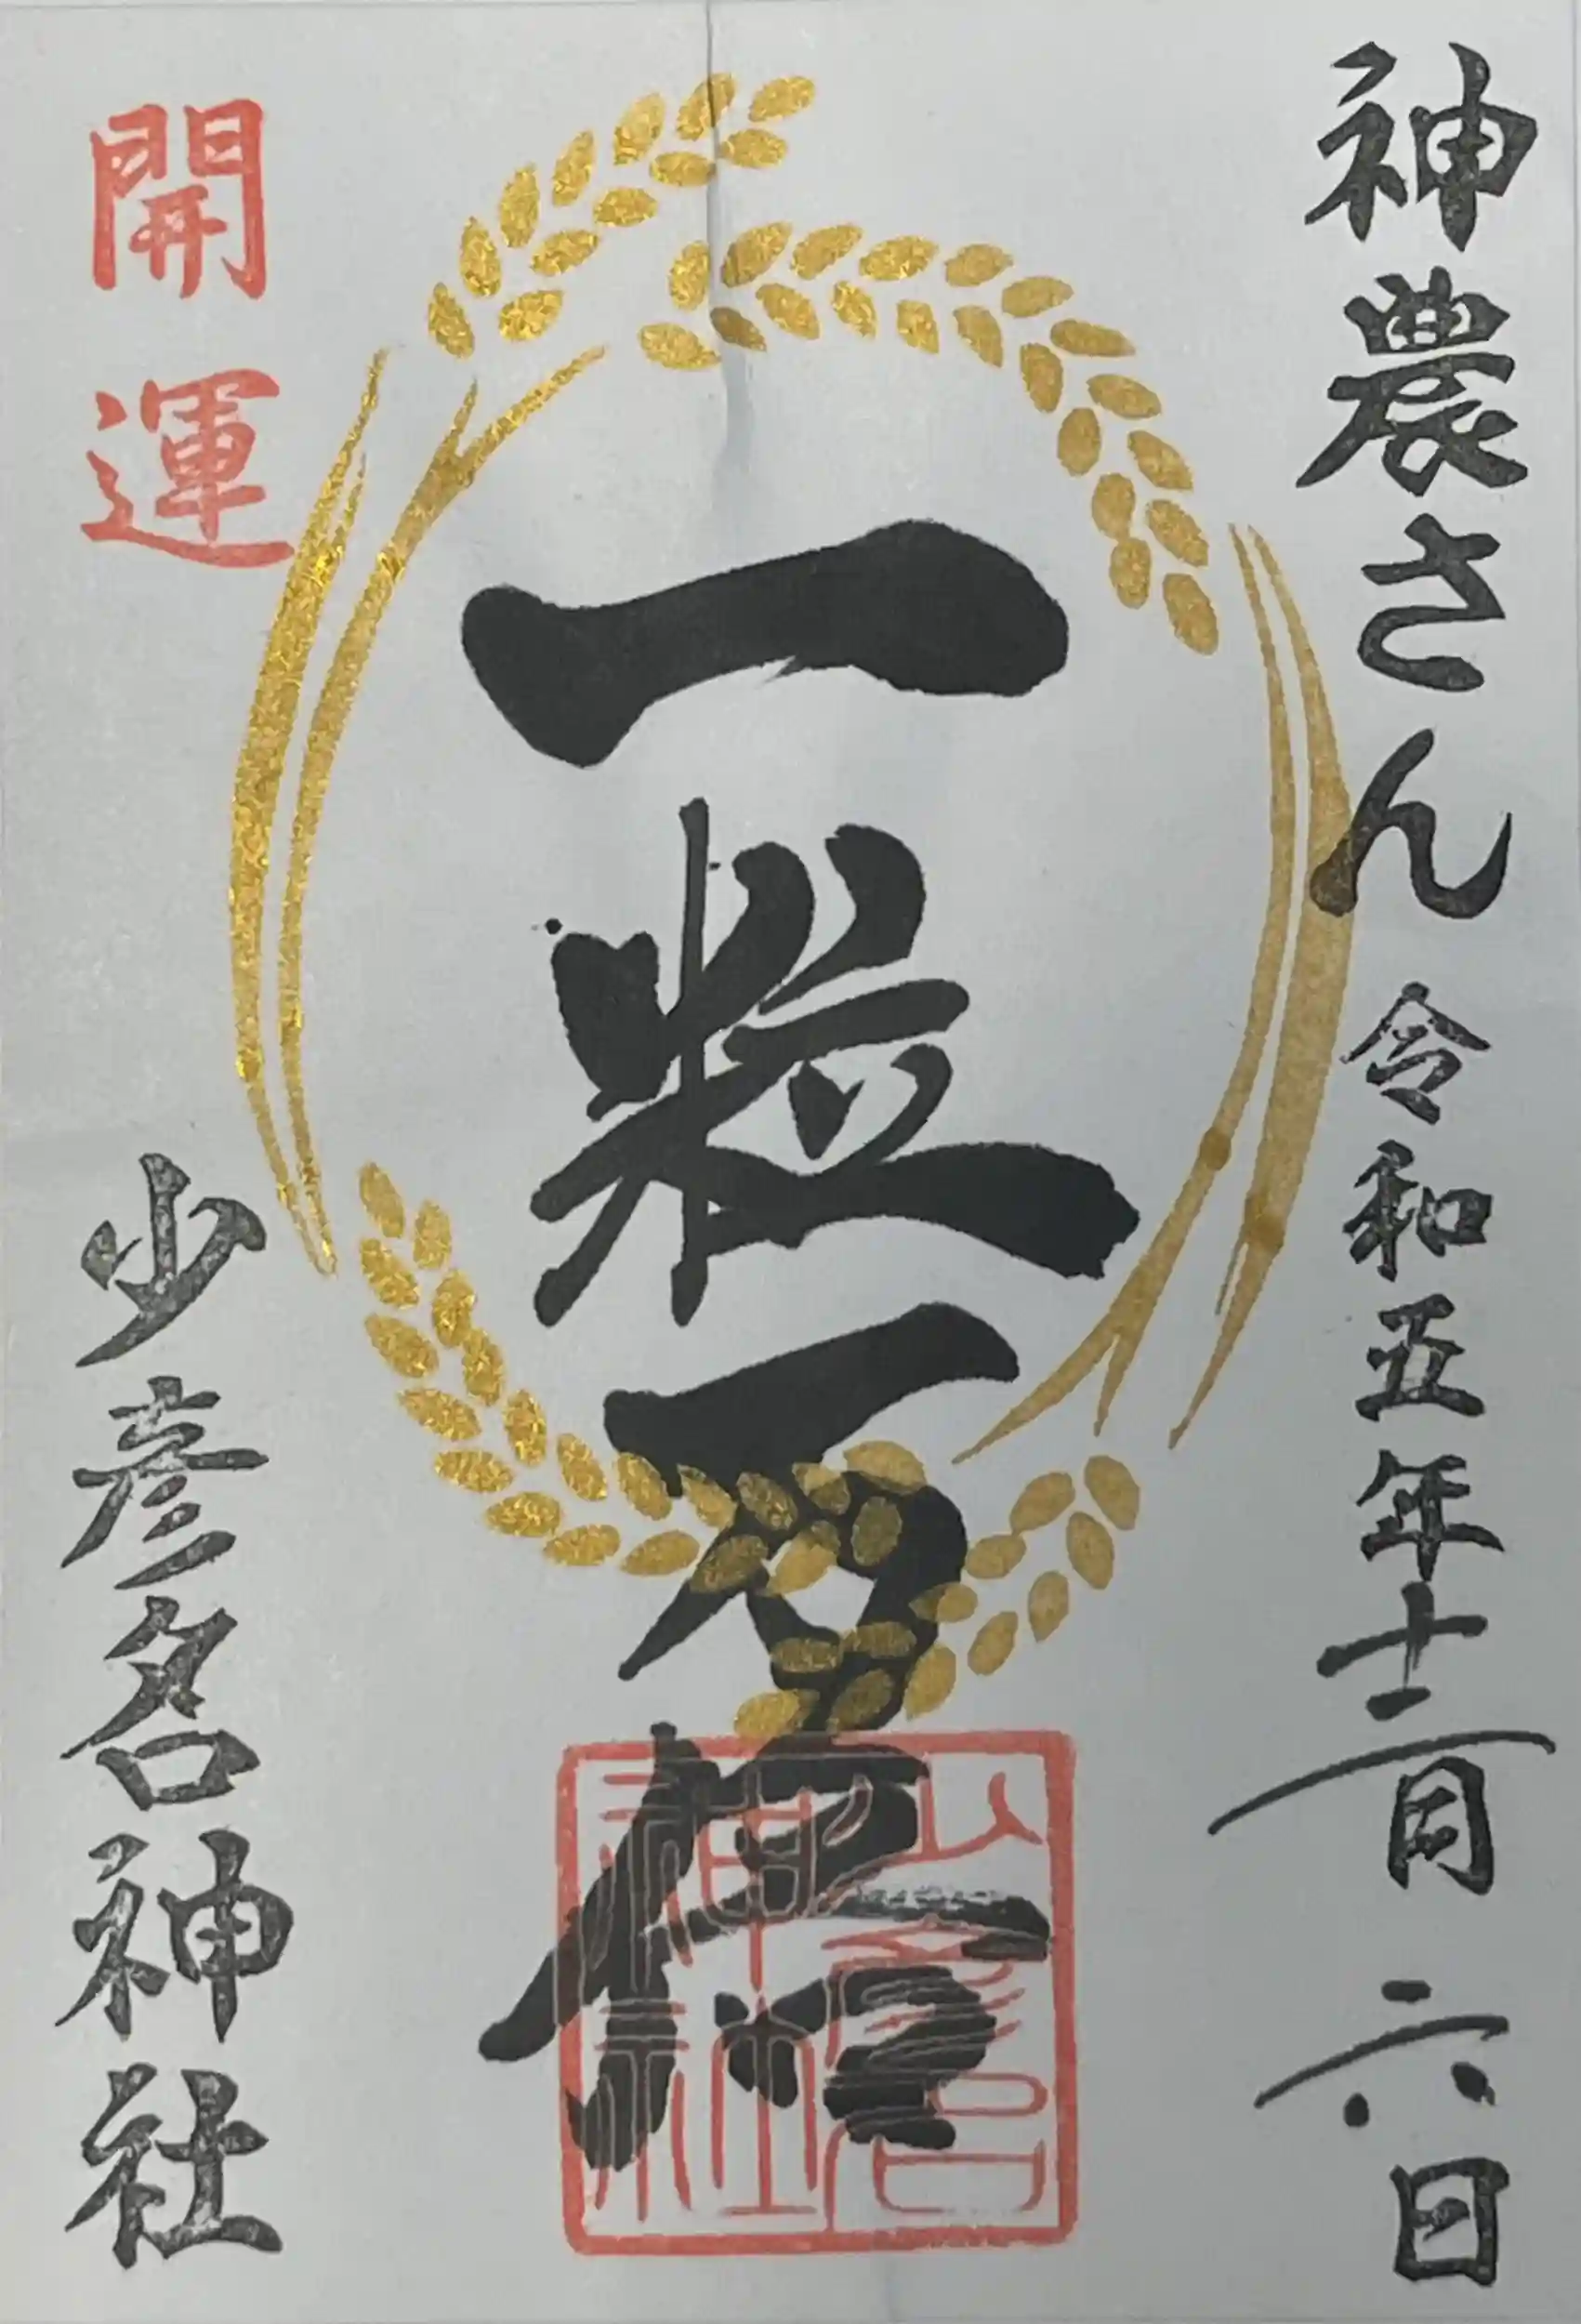 神農さん 令和五年十二月 六日
一粒万倍
開運
少彦名神社
少彦名
神社